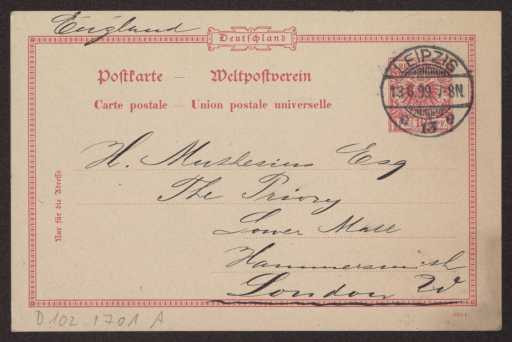 England
Deutschland
Postkarte — Weltpostverein
Carte postale — Union postale universelle
LEIPZIG
13.6.99.7-8N.
13
H. Muthesius Esq
The Priory
Lower Mall
Hammersmith
London W
Nur für die Adresse
D 102-1701 A